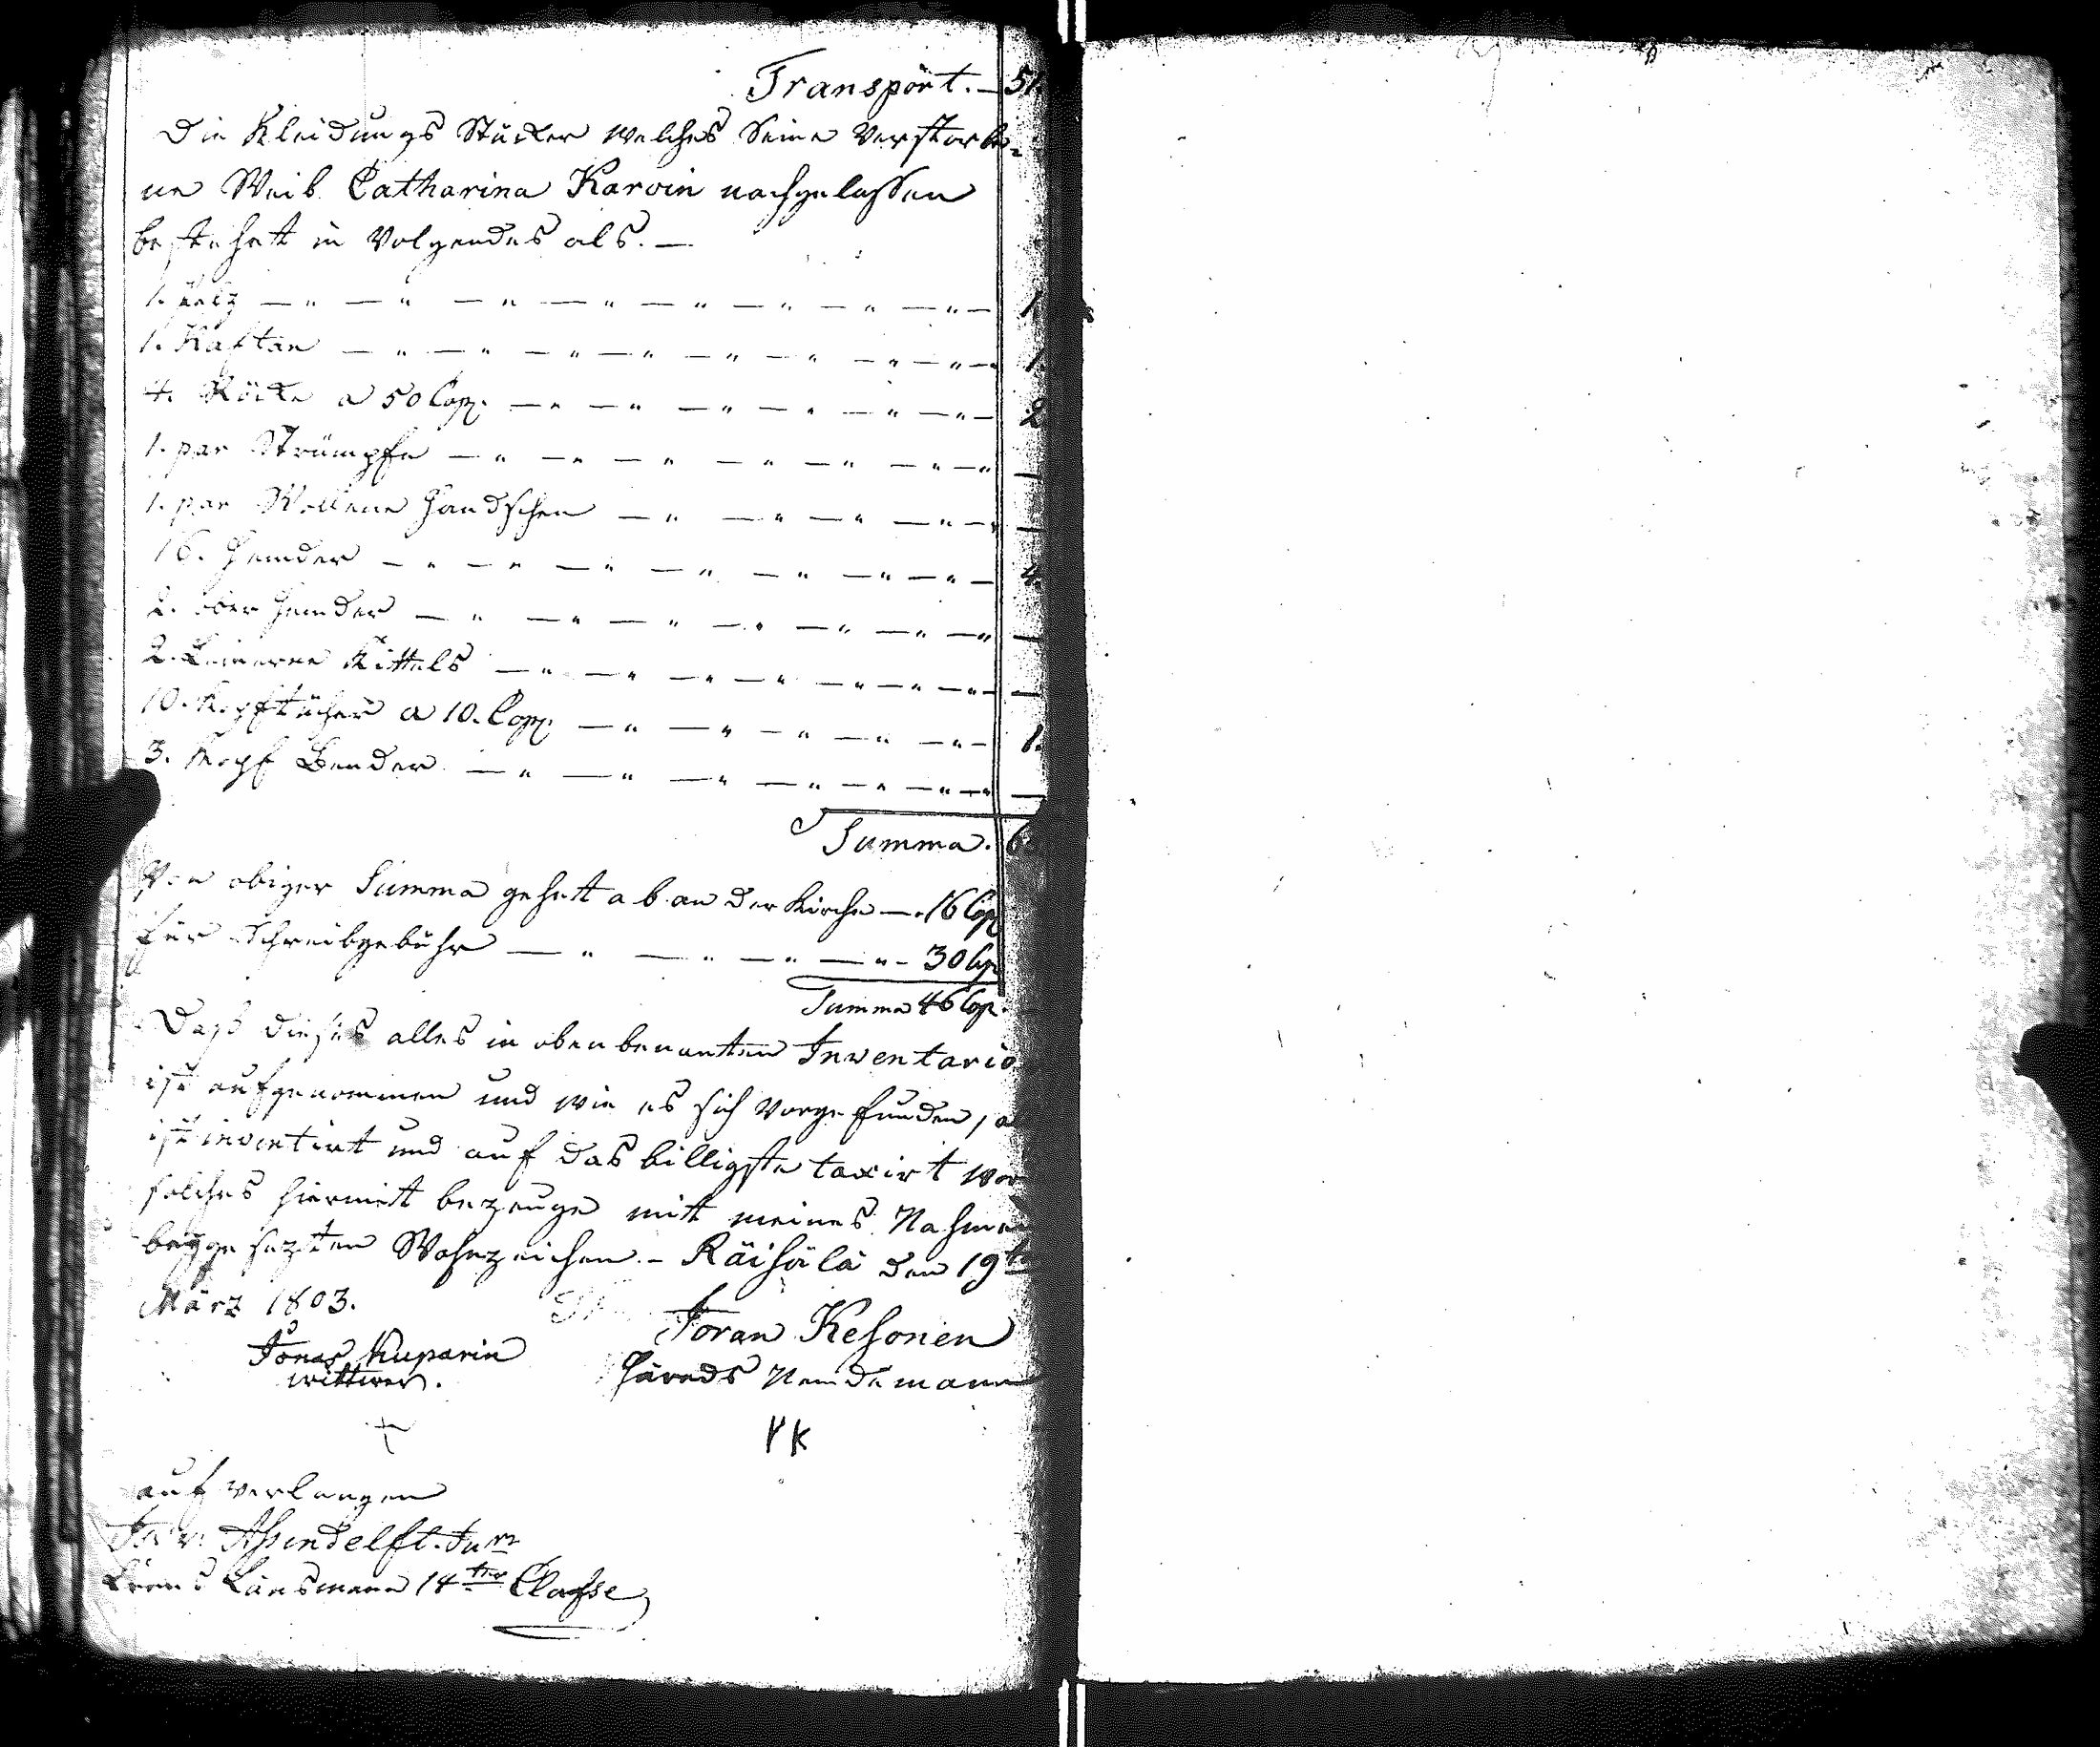 Transport. — 51.
Die Kleidungs Stücker welches Seine Verstorbe-
ne Weib Catharina Karvin nachgelassen
bestehett in Volgendes als. —
1. Pelz — " — " — " — " — " — " — " — " — 1.
1. Kaftan — " — " — " — " — " — " — " — " — 1.
4. Röcke a 50 Cop. — " — " — " — " — " — " — 2
1. par Strümpfe — " — " — " — " — " — " — " —
1. par Wollene Handschen — " — " — " — " — " —
16. Hemder — " — " — " — " — " — " — " — 4.
2. ober Hemder — " — " — " — " — " — " — " —
2. Leinerne Kittels — " — " — " — " — " — " — " —
10. Kopftücher a 10. Cop. — " — " — " — " — " — 1.
3. Kopf Bender — " — " — " — " — " — " — " —
Summa. 6
Von obiger Summa gehett ab an der Kirche — " 16 Cop
für Schreibgebühr — " — " — " — " — 30 Cop
Summa 46 Cop.
Daß dieses alles in obenbenanten Inventario
ist aufgenommen und wie es sich Vorgefunden,
ist inventirt und auf das billigste taxirt
solches hiermitt bezeuge mitt meines Nahmen
beygesezten Wahrzeichen. – Räisälä den 19ten
März 1803.
Jonas Kuparin Joran Kesonen
wittwer. Härads Nemdemann
+ YK
auf verlangen
Jun
Länsmann 14ter Classe